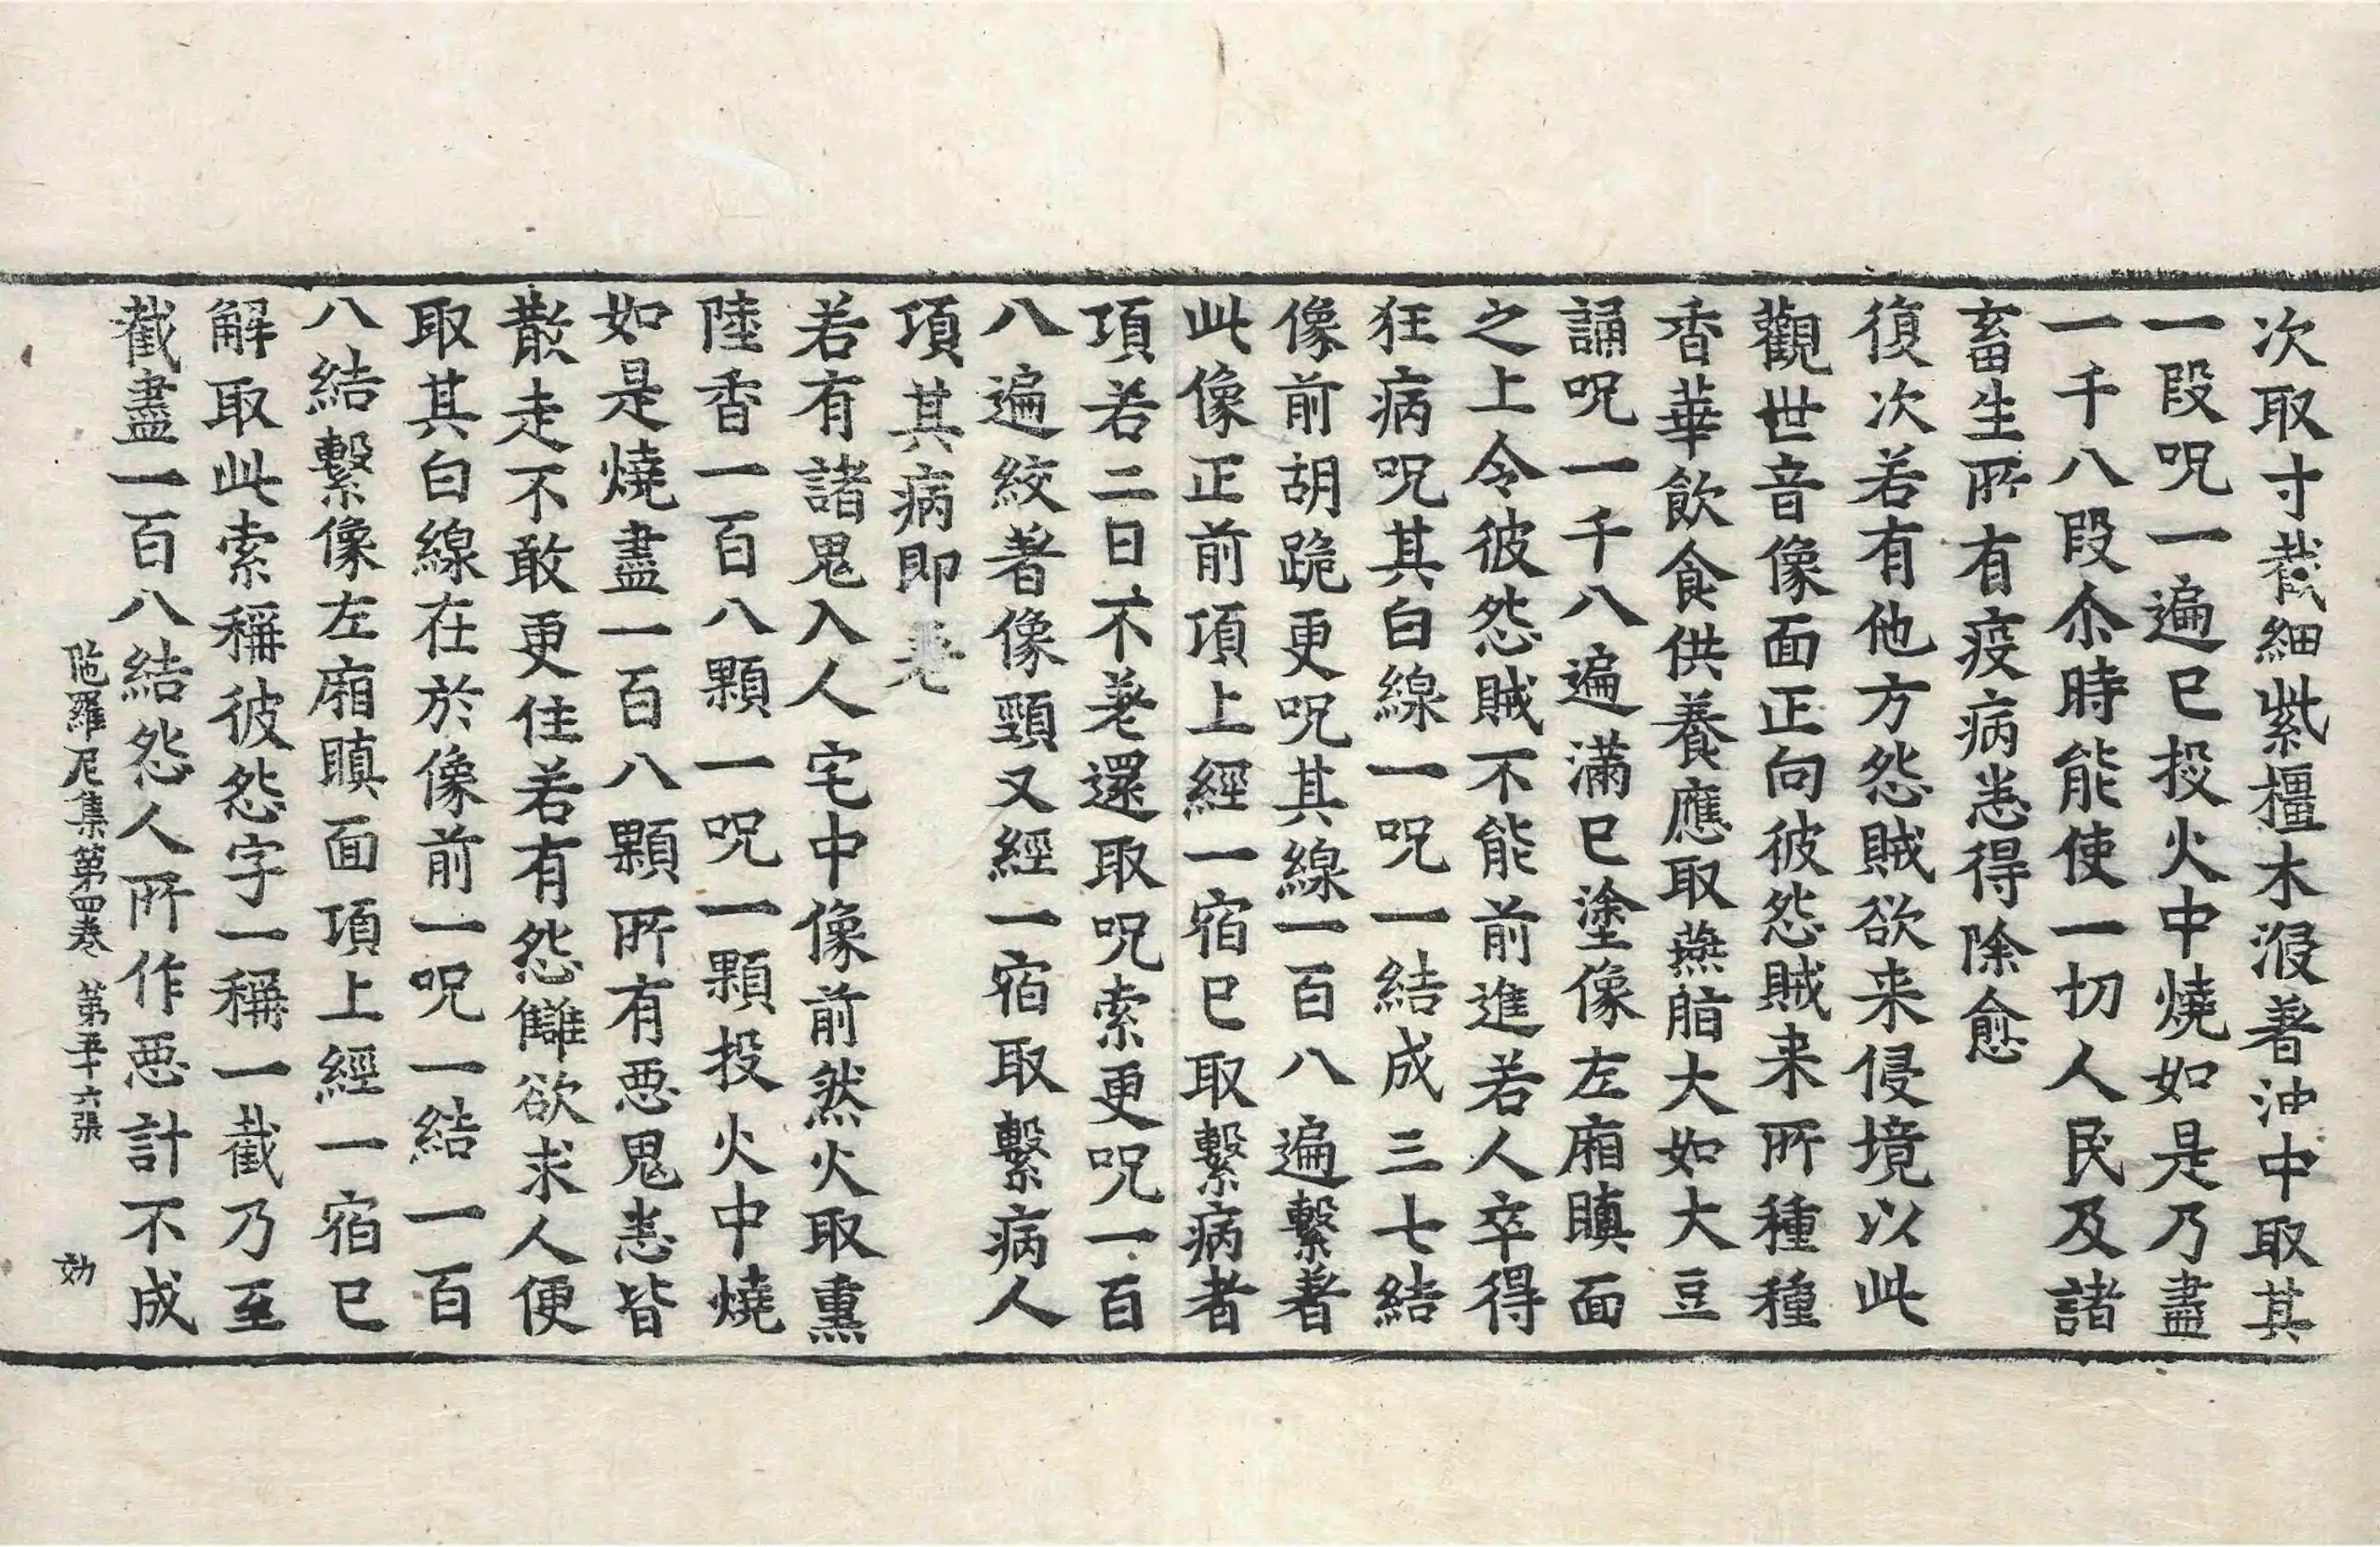 次取寸截細紫橿木浸著油中取其
一段呪一遍已投火中燒如是乃盡
一千八段尒時能使一切人民及諸
畜生所有疫病悉得除愈
復次若有他方怨賊欲来侵境以此
觀世音像面正向彼怨賊来所種種
香華飲食供養應取燕脂大如大豆
誦呪一千八遍滿已塗像左廂瞋面
之上令彼怨賊不能前進若人卒得
狂病呪其白線一呪一結成三七結
像前胡跪更呪其線一百八遍繫著
此像正前項上經一宿已取繫病者
項若二日不差還取呪索更呪一百
八遍絞著像頸又經一宿取繫病人
項其病即差
若有諸鬼入人宅中像前然火取熏
陸香一百八顆一呪一顆投火中燒
如是燒盡一百八顆所有惡鬼悉皆
散走不敢更住若有怨讎欲求人便
取其白線在於像前一呪一結一百
八結繫像左廂瞋面項上經一宿已
解取此索稱彼怨字一稱一截乃至
截盡一百八結怨人所作惡計不成
陁羅尼集第四卷 第五十六張 効